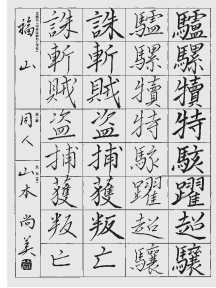 驢騾犢特
駭躍超驤
驢騾犢特
駭躍超驤
誅斬賊盗
捕獲叛亡
誅斬賊盗
捕獲叛亡
福山
同人
山本尚美